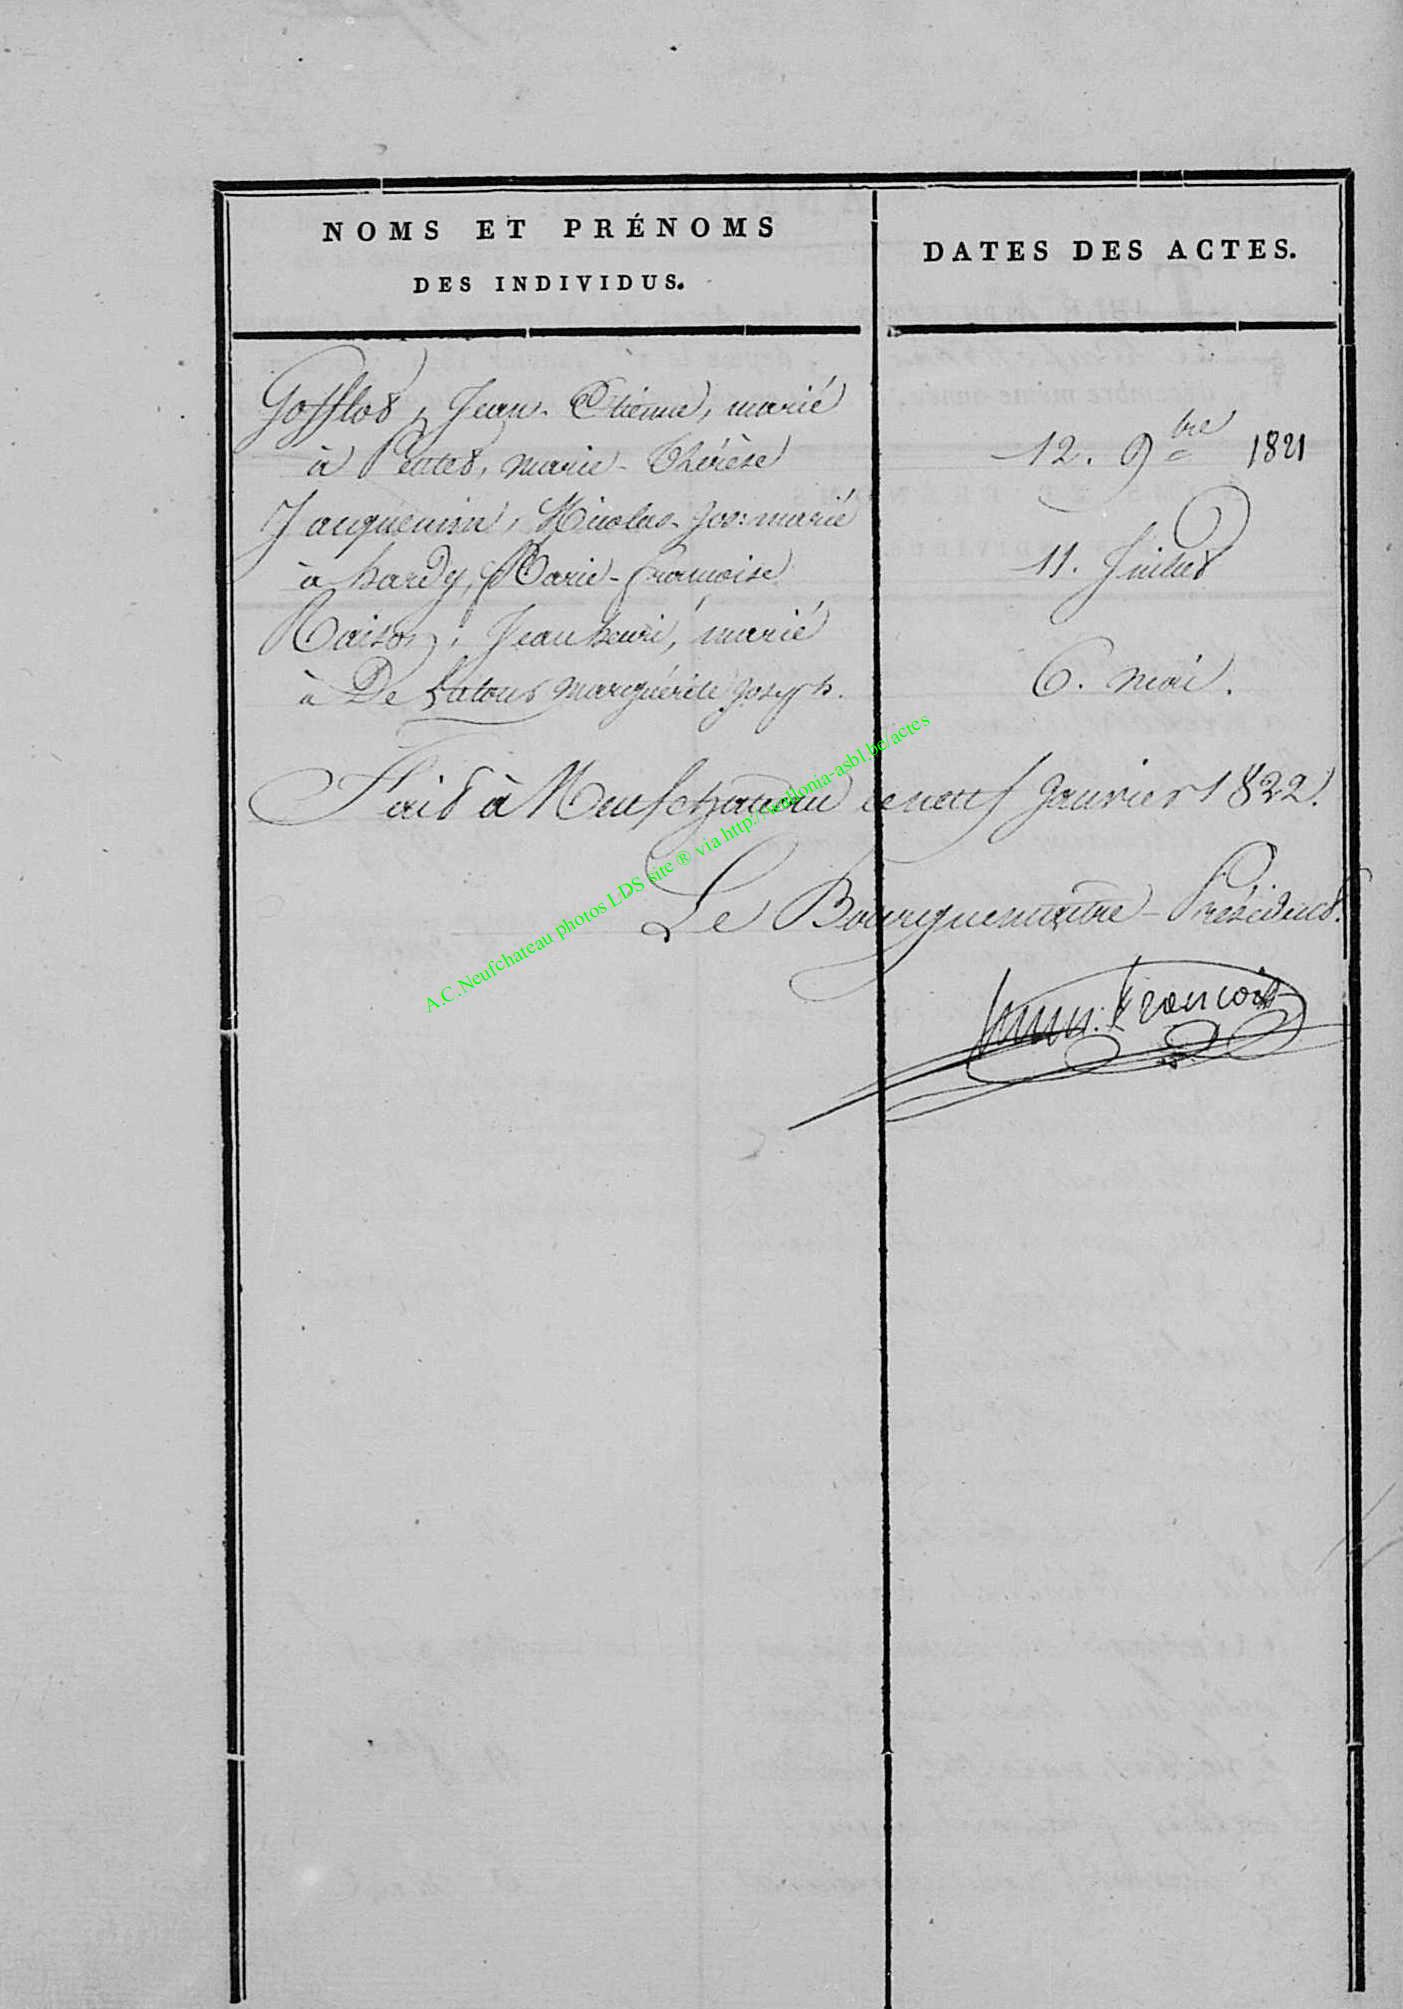 NOMS ET PRÉNOMS
DES INDIVIDUS.
DATES DES ACTES.
Gofflot, Jean-Etienne, marié
à marie-Thérèse
12. 9bre 1821
Jacquemin, Nicolas-Jos: marié
à hardy, Marie-françoise
11. Juillet
Raison, Jean henri, marié
à De Latour marguérite joseph.
6. mai.
Fait à Neufchateau ce neuf Janvier 1822.
Le Bourguemaitre-Président.
françois
A.C.Neufchateau photos LDS site ® via http://wallonia-asbl.be/actes